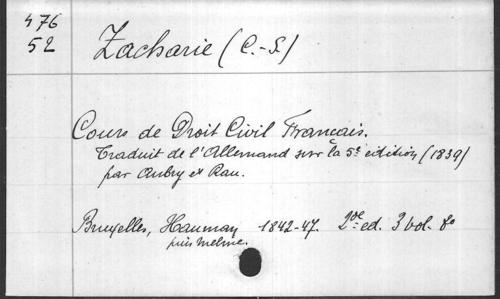 476
52
Zacharie (C.-S.)
Cours de Droit Civil Francais.
Traduit de l'Allemand sur la 5e edition (1839)
par Aubry et Rau.
Bruxelles, Hauman 1842-47. 2de ed. 3 vol. 8o
puis Meline.